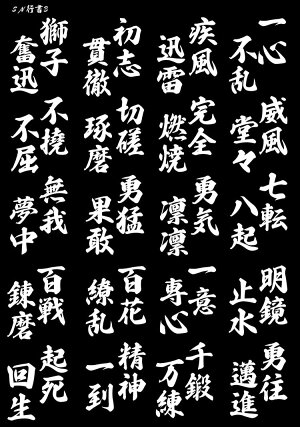 SN行書S
一心不乱
疾風迅雷
初志貫徹
獅子奮迅
威風堂々
完全燃焼
切磋琢磨
不撓不屈
七転八起
勇気凛凛
勇猛果敢
無我夢中
明鏡止水
一意専心
百花繚乱
百戦錬磨
勇往邁進
千鍛万練
精神一到
起死回生